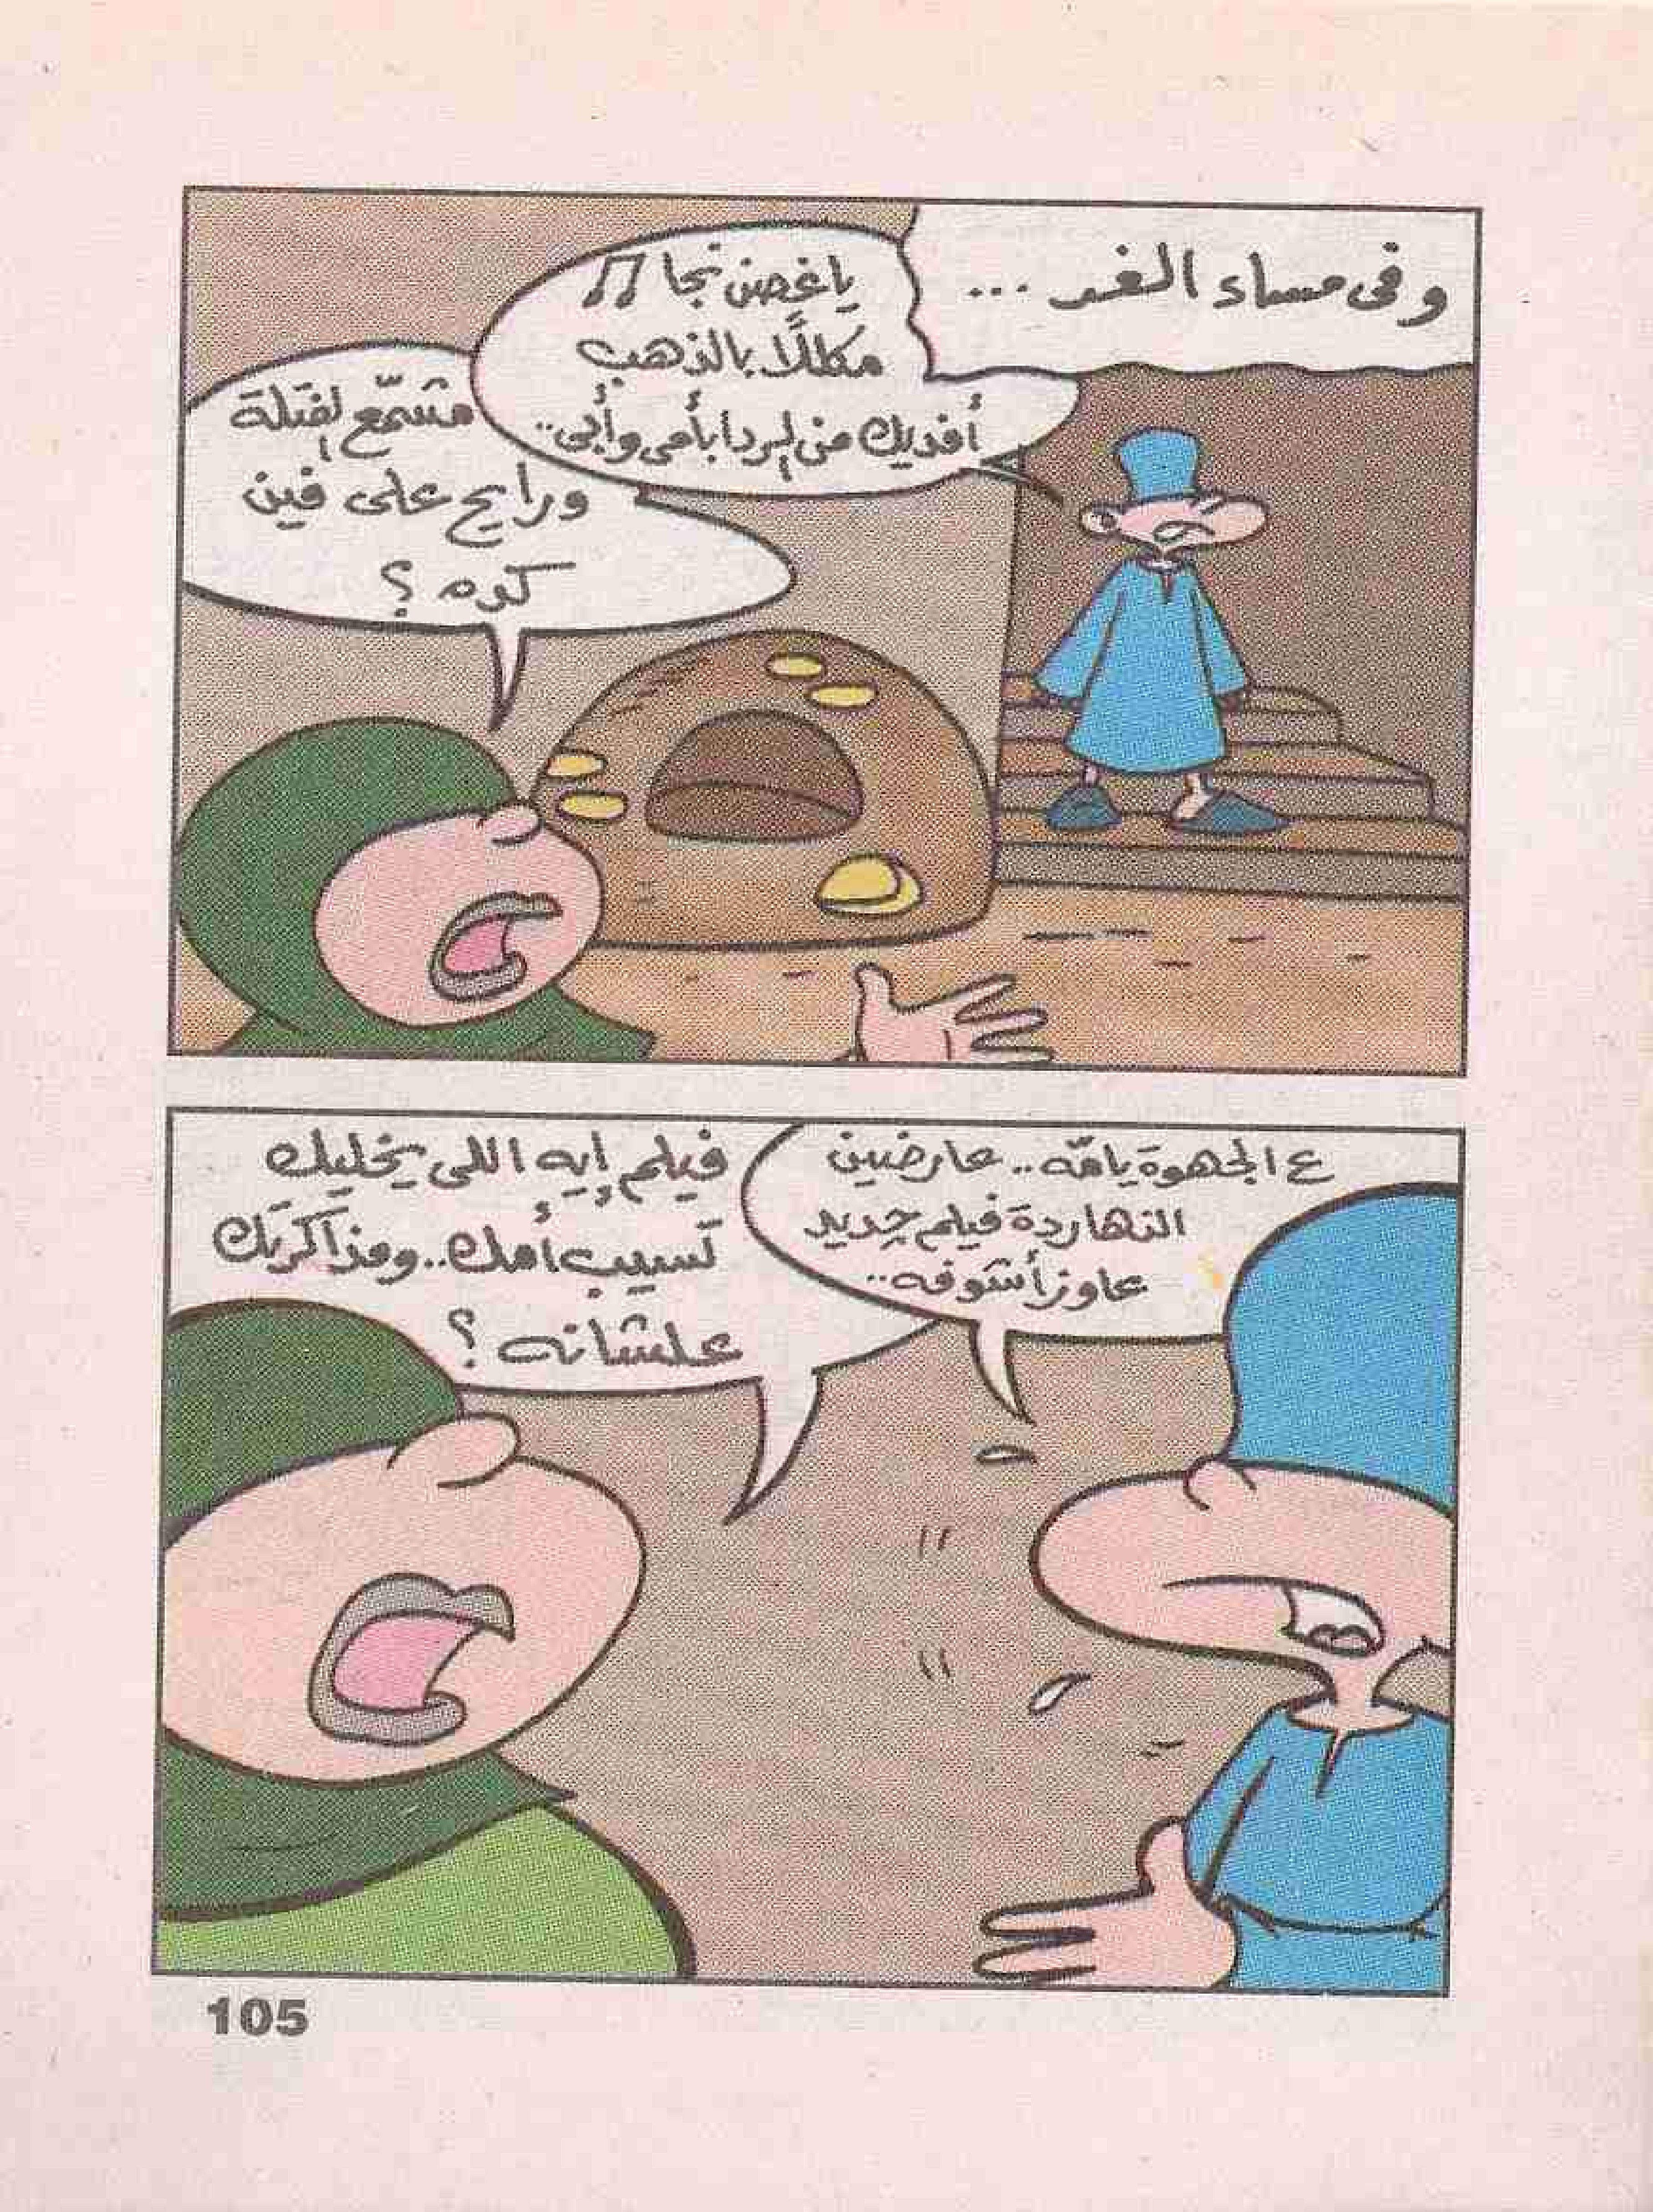 وفى مساء الغد ...
ياغصن نجا
مكللًا بالذهب
أفديك من الردا بأمى وأبى..
مشمّع الفتلة
ورايح على فين
كده ؟
ع الجهوة يامّه.. عارضين
النهاردة فيلم جديد
عاوز أشوفه..
فيلم إيه اللى يخليك
تسيب أمك.. ومذاكرتك
علشانه ؟
105